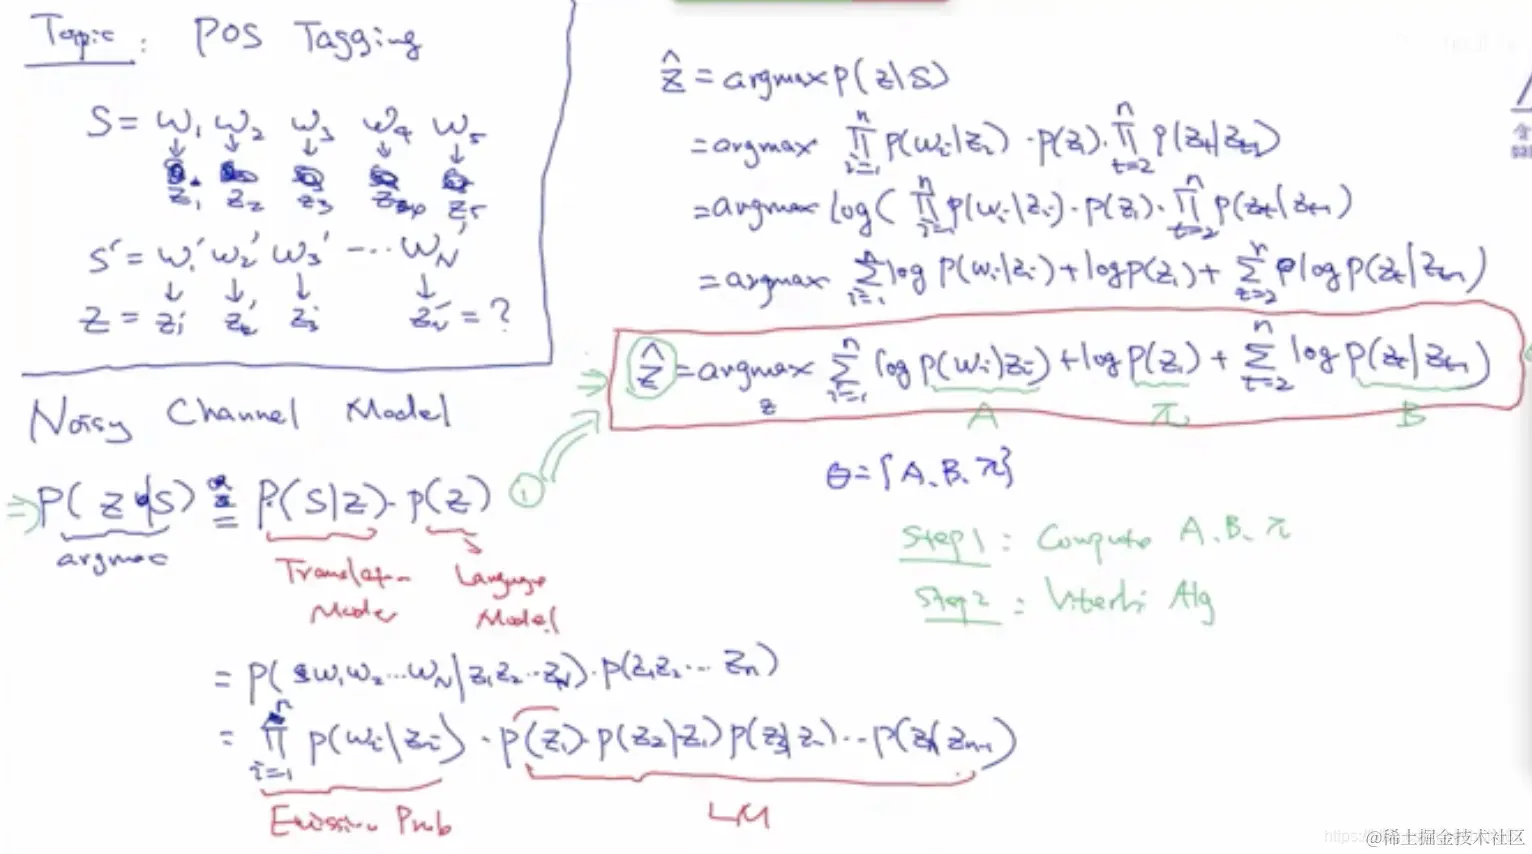 Topic : POS Tagging
S = w₁ w₂ w₃ w₄ w₅
↓ ↓ ↓ ↓ ↓
z₁ z₂ z₃ z₄ z₅
S' = w₁' w₂' w₃' ... w_N'
↓ ↓ ↓ ↓
Z = z₁' z₂' z₃' z_N' = ?
Noisy Channel Model
⇒ P(Z|S) = P(S|Z) · p(Z) ①
argmax
Translation Model
Language Model
= p(w₁w₂...w_N|z₁z₂...z_N) · p(z₁z₂...z_n)
= ∏_{i=1}^{n} p(w_i|z_i) · p(z₁) · p(z₂|z₁) p(z₃|z₂) ... p(z_n|z_{n-1})
Emission Prob
LM
ẑ = argmax p(z|S)
= argmax ∏_{i=1}^{n} p(w_i|z_i) · p(z₁) · ∏_{t=2}^{n} p(z_t|z_{t-1})
= argmax log( ∏_{i=1}^{n} p(w_i|z_i) · p(z₁) · ∏_{t=2}^{n} p(z_t|z_{t-1})
= argmax ∑_{i=1}^{n} log p(w_i|z_i) + log p(z₁) + ∑_{t=2}^{n} log p(z_t|z_{t-1})
⇒ ẑ = argmax_z ∑_{i=1}^{n} log p(w_i|z_i) + log p(z₁) + ∑_{t=2}^{n} log p(z_t|z_{t-1})
A π B
θ = {A. B. π}
Step1 : Compute A. B. π
Step2 : Viterbi Alg
@稀土掘金技术社区